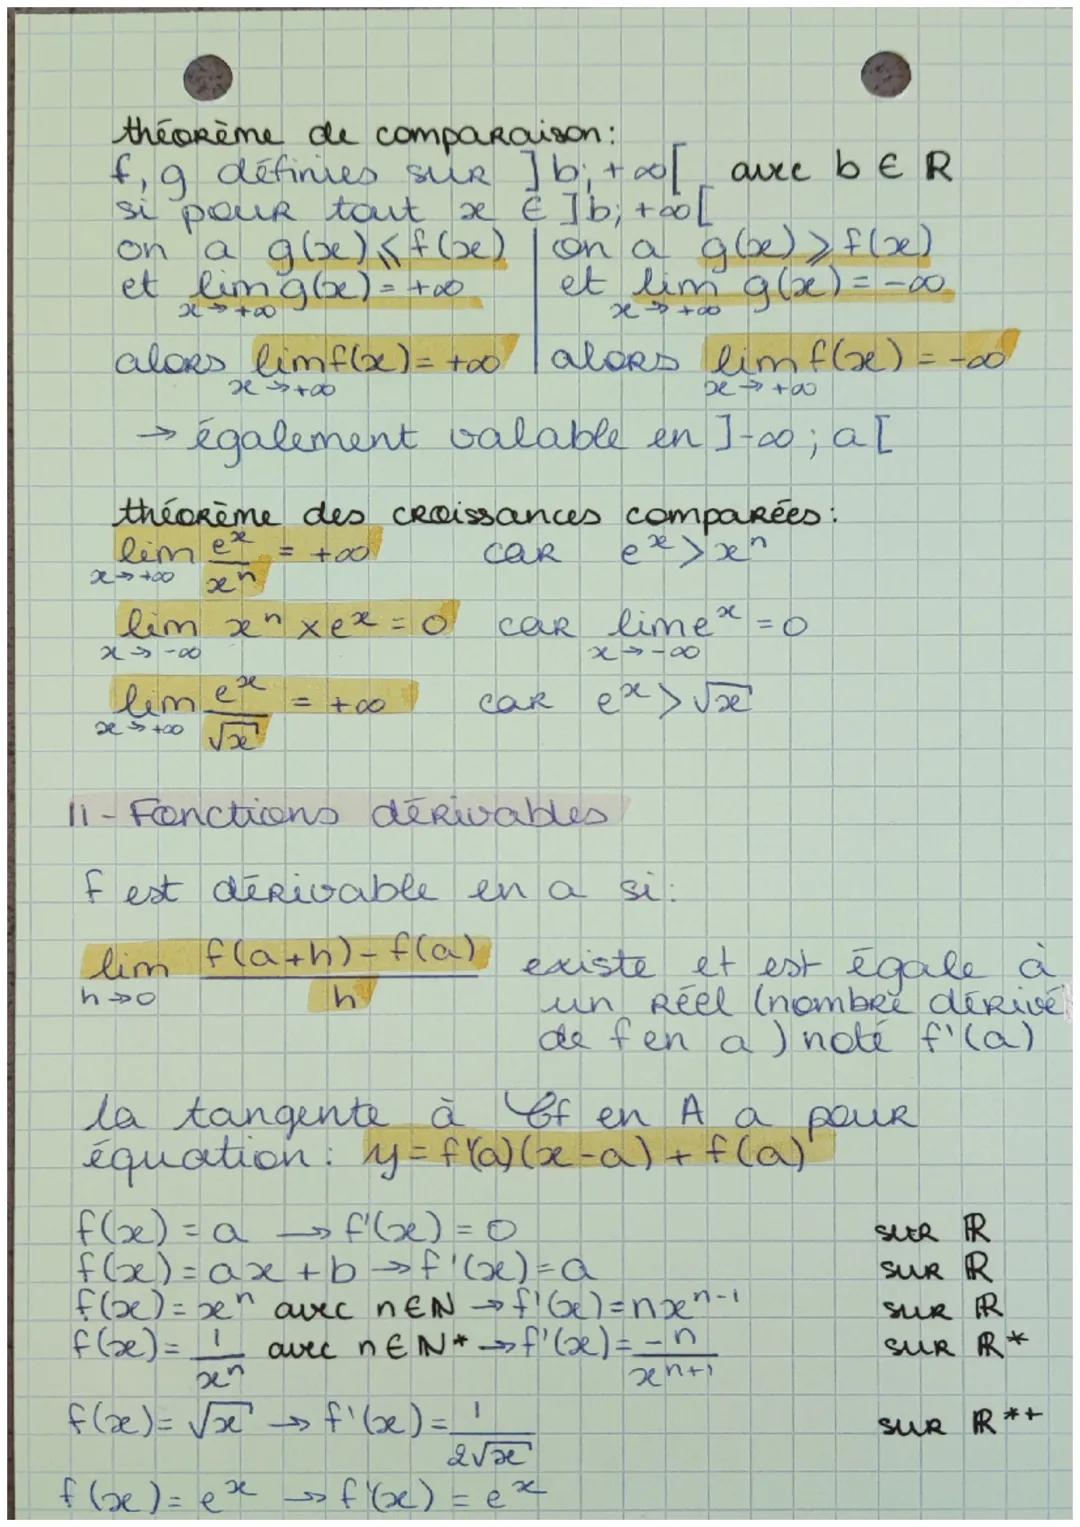 théorème de comparaison:
f, g définies sur ]b; +∞[ avec b ∈ R
si pour tout x ∈ ]b; +∞[
on a g(x) ⩽ f(x) | on a g(x) ⩾ f(x)
et lim g(x) = +∞ | et lim g(x) = -∞
x→+∞ x→+∞
alors lim f(x) = +∞ | alors lim f(x) = -∞
x→+∞ x→+∞
→ également valable en ]-∞; a[
théorème des croissances comparées:
lim e^x/x^n = +∞ car e^x > x^n
x→+∞
lim x^n × e^x = 0 car lim e^x = 0
x→-∞ x→-∞
lim e^x/√x = +∞ car e^x > √x
x→+∞
II - Fonctions dérivables
f est dérivable en a si:
lim (f(a+h) - f(a))/h existe et est égale à
h→0 un réel (nombre dérivé
de f en a) noté f'(a)
la tangente à 𝒞f en A a pour
équation: y = f'(a)(x-a) + f(a)
f(x) = a → f'(x) = 0 sur ℝ
f(x) = ax + b → f'(x) = a sur ℝ
f(x) = x^n avec n ∈ ℕ → f'(x) = nx^(n-1) sur ℝ
f(x) = 1/x^n avec n ∈ ℕ* → f'(x) = -n/x^(n+1) sur ℝ*
f(x) = √x → f'(x) = 1/(2√x) sur ℝ*+
f(x) = e^x → f'(x) = e^x